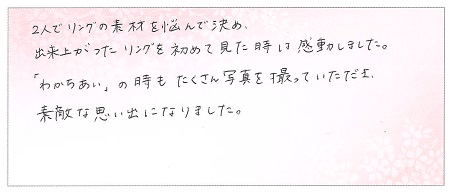 2人でリングの素材を悩んで決め、
出来上がったリングを初めて見た時は感動しました。
「わかちあい」の時もたくさん写真を撮っていただき、
素敵な思い出になりました。